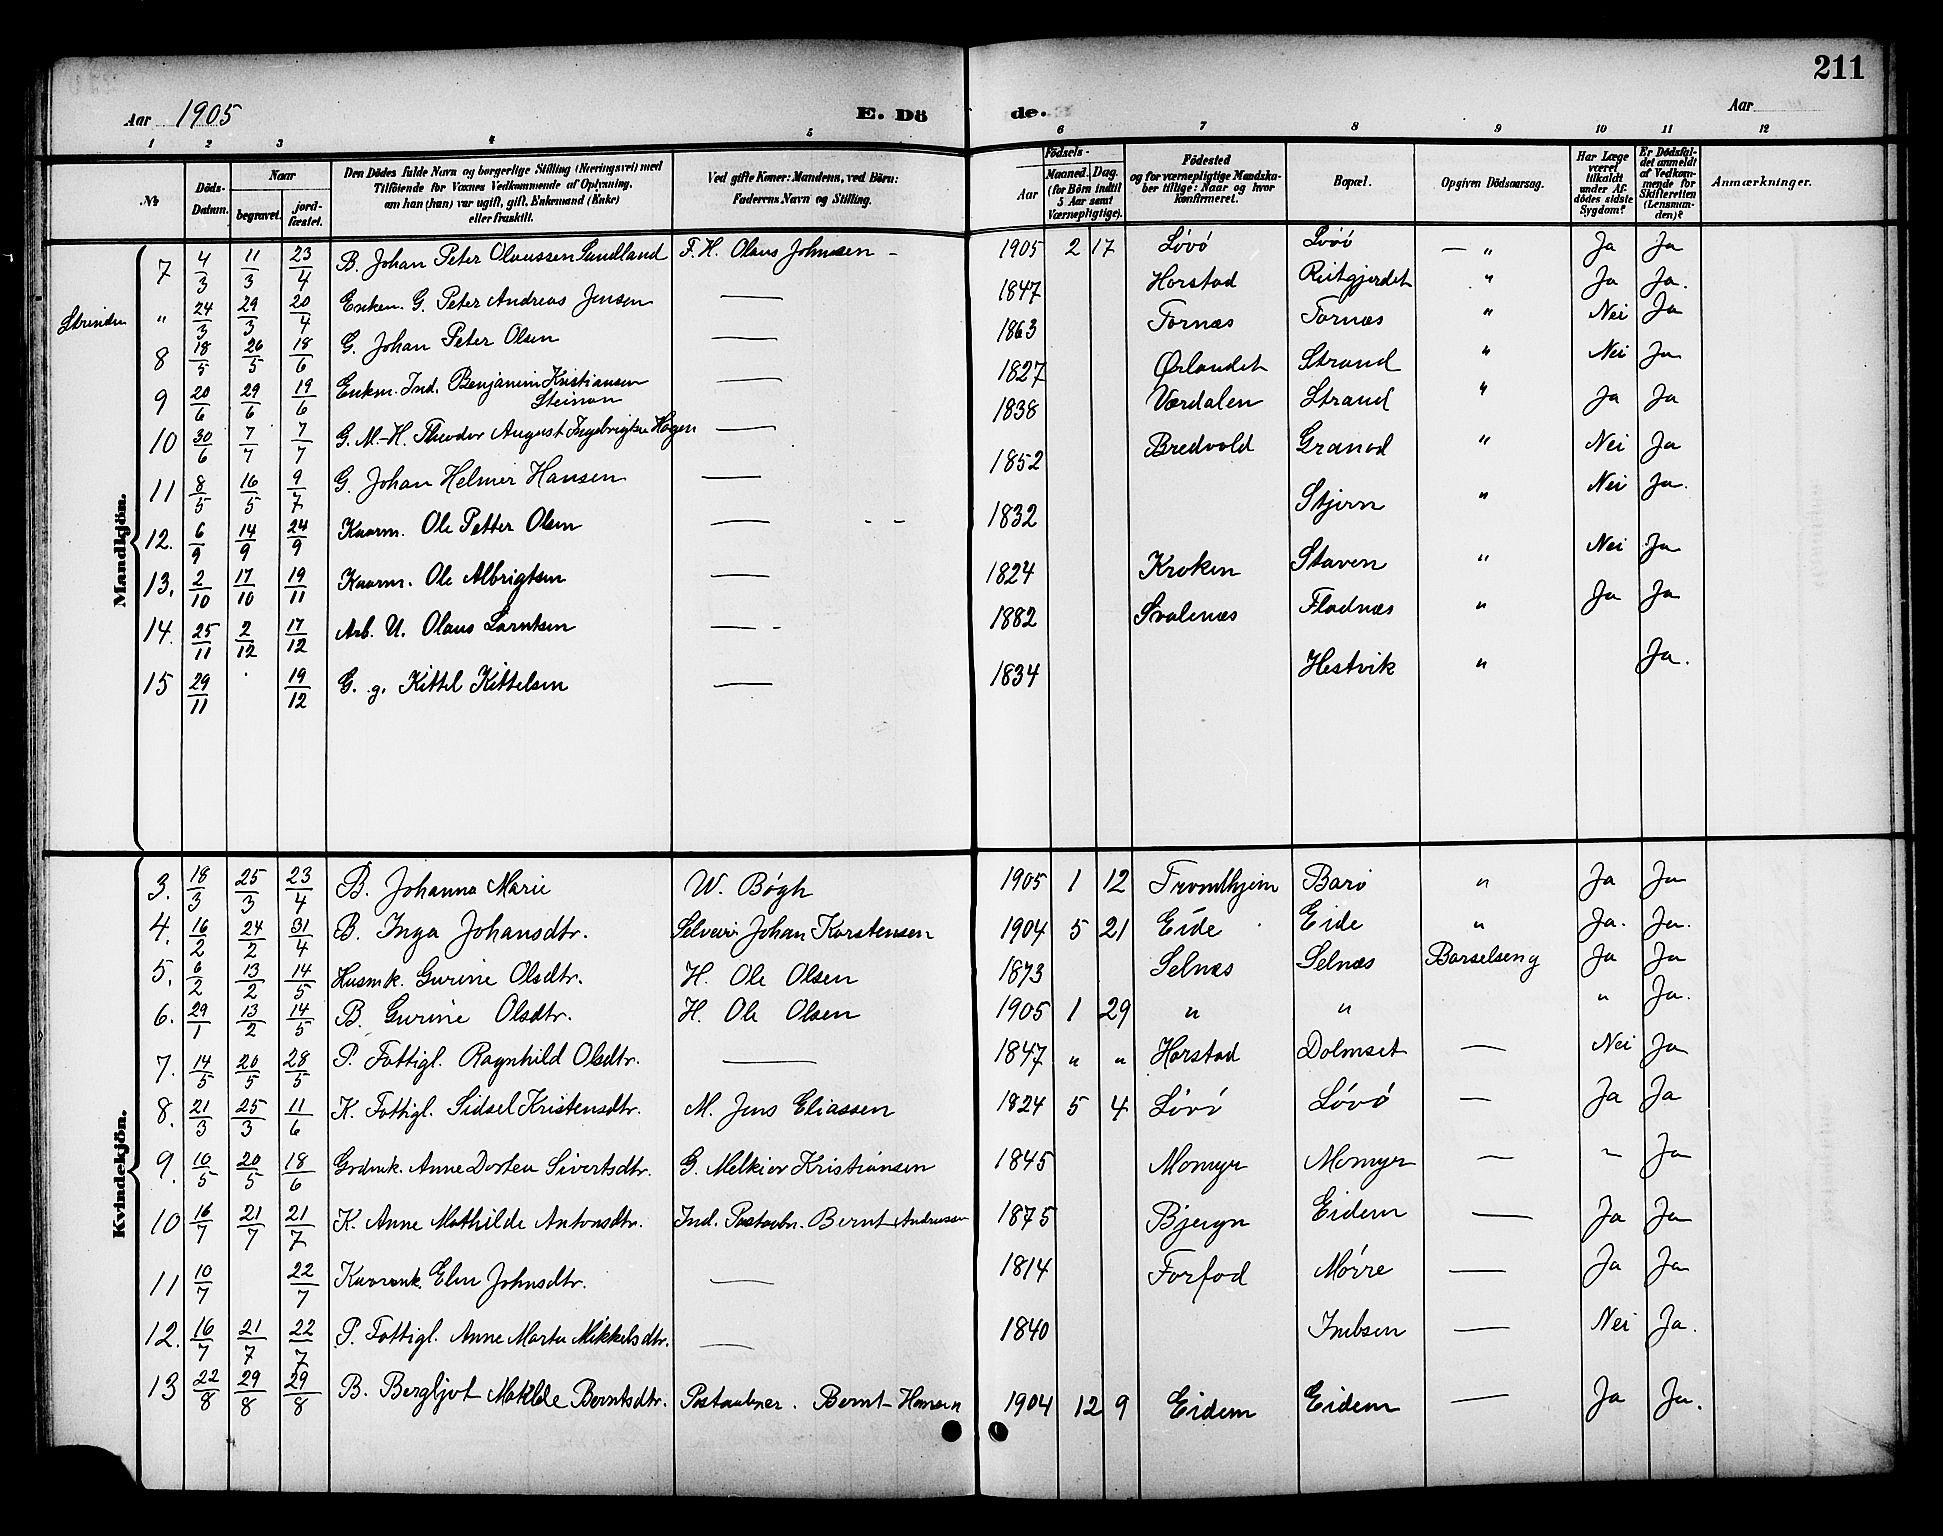 211
Aar 1905 E. Dö de. Aar
1 2 3 4 5 6 7 8 9 10 11 12
№ Döds-Datum. Naar begravet. jord-fæstet. Den Dödes fulde Navn og borgerlige Stilling (Næringsvei) med Tilföiende for Voxnes Vedkommende af Oplysning, om han (hun) var ugift, gift, Enkemand (Enke) eller fraskilt. Ved gifte Koner: Mandens, ved Börn: Faderens Navn og Stilling. Födsels- Aar Maaned. Dag. (for Börn indtil 5 Aar samt Værnepligtige). Födested og for værnepligtige Mandskaber tillige: Naar og hvor konfirmeret. Bopæl. Opgiven Dödsaarsag. Har Læge været tilkaldt under Afdödes sidste Sygdom? Er Dödsfaldet anmeldt af Vedkommende for Skifteretten (Lensmanden)? Anmærkninger.
Mandkjön.
7 4/3 11/3 23/4 B. Johan Peter Olaussen Sundland F. H. Olaus Johnsen - 1905 2 17 Løvø Løvø — " Ja Ja
Strinden " 24/3 29/3 20/4 Enkem. G. Peter Andreas Jensen — 1847 Harstad Riitgjerdet " Ja Ja.
8 18/5 26/5 18/6 G. Johan Peter Olsen — 1863 Tornæs Tornæs " Nei Ja
9 20/6 29/6 19/6 Enkm. Ind. Benjamin Kristiansen Steinan — 1827 Ørlandet Strand " Nei Ja
10 30/6 7/7 7/7 G. M.-H. Theodor August Ingebrigtsen Hagen — 1838 Værdalen Strand " Ja Ja
11 8/5 16/5 9/7 G. Johan Helmer Hansen — 1852 Bredvold Granad " Nei Ja
12. 6/9 14/9 24/9 Kaarm. Ole Petter Olsen — - - 1832 Stjern " Nei Ja.
13. 2/10 17/10 19/11 Kaarm. Ole Albrigtsen — 1824 Kroken Staven " Nei Ja
14. 25/11 2/12 17/12 Arb. U. Olaus Larntsen — - 1882 Svalenæs Fladnæs " Ja Ja
15 29/11 19/12 G. g. Kittil Kittelsen — 1834 Hestvik " Ja.
Kvindekjön.
3. 18/3 25/3 23/4 B. Johanna Marie W. Bøgh 1905 1 12 Tromthjem Barø " Ja Ja
4. 16/2 24/2 31/4 B. Inga Johansdtr. Selveier Johan Karstensen 1904 5 21 Eide Eide " Ja. Ja.
5. 6/2 13/2 14/5 Husmk. Gurine Olsdtr. H. Ole Olsen 1873 Selnæs Selnæs Barselseng Ja Ja
6. 29/1 13/2 14/5 B. Gurine Olsdtr. H. Ole Olsen 1905 1 29 " " " Ja.
7. 14/5 20/5 28/5 P. Fattigl. Ragnhild Olsdtr. — 1847 " " Harstad Dolmset — Nei Ja
8. 21/3 25/3 11/6 K. Fattigl. Sidsel Kristensdtr. M. Jens Eliassen 1824 5 4 Løvø Løvø — Ja Ja
9. 10/5 20/5 18/6 Grdmk. Anne Dortea Sivertsdtr. G. Melkior Kristiansen 1845 Momyr Momyr — ~ Ja
10 16/7 21/7 21/7 K. Anne Mathilde Antonsdtr. Ind. Postaabn. Bernt Andreassen 1875 Bjergn Eidem — Ja Ja
11 10/7 22/7 Kaarenk. Elen Johnsdtr. — 1814 Forfod Mørre — Ja Ja
12. 16/7 21/7 22/7 P. Fattigl. Anne Marta Mikkelsdtr. — 1840 Imbsen — Nei Ja.
13 22/8 29/8 29/8 B. Bergljot Matilde Berntsdtr. Postaabner. Bernt Hansen 1904 12 9 Eidem Eidem — Ja Ja.